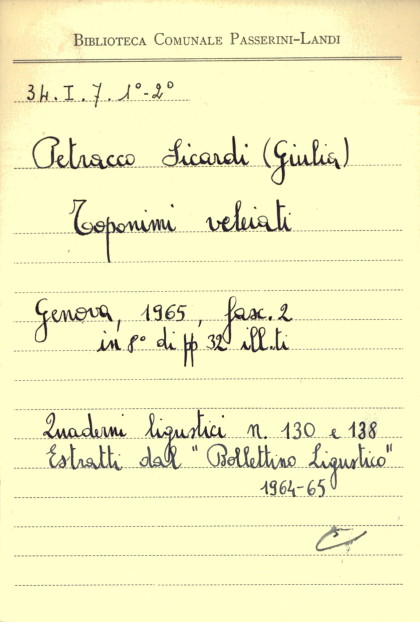 BIBLIOTECA COMUNALE PASSERINI-LANDI
34.I.7.1°-2°
Petracco Sicardi (Giulia)
Toponimi veleiati
Genova, 1965, fasc. 2
in 8° di pp 32 ill.ti
Quaderni ligustici n. 130 e 138
Estratti dal "Bollettino Ligustico"
1964-65